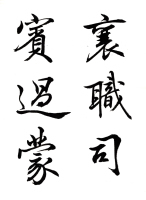 襄職司
賓過蒙